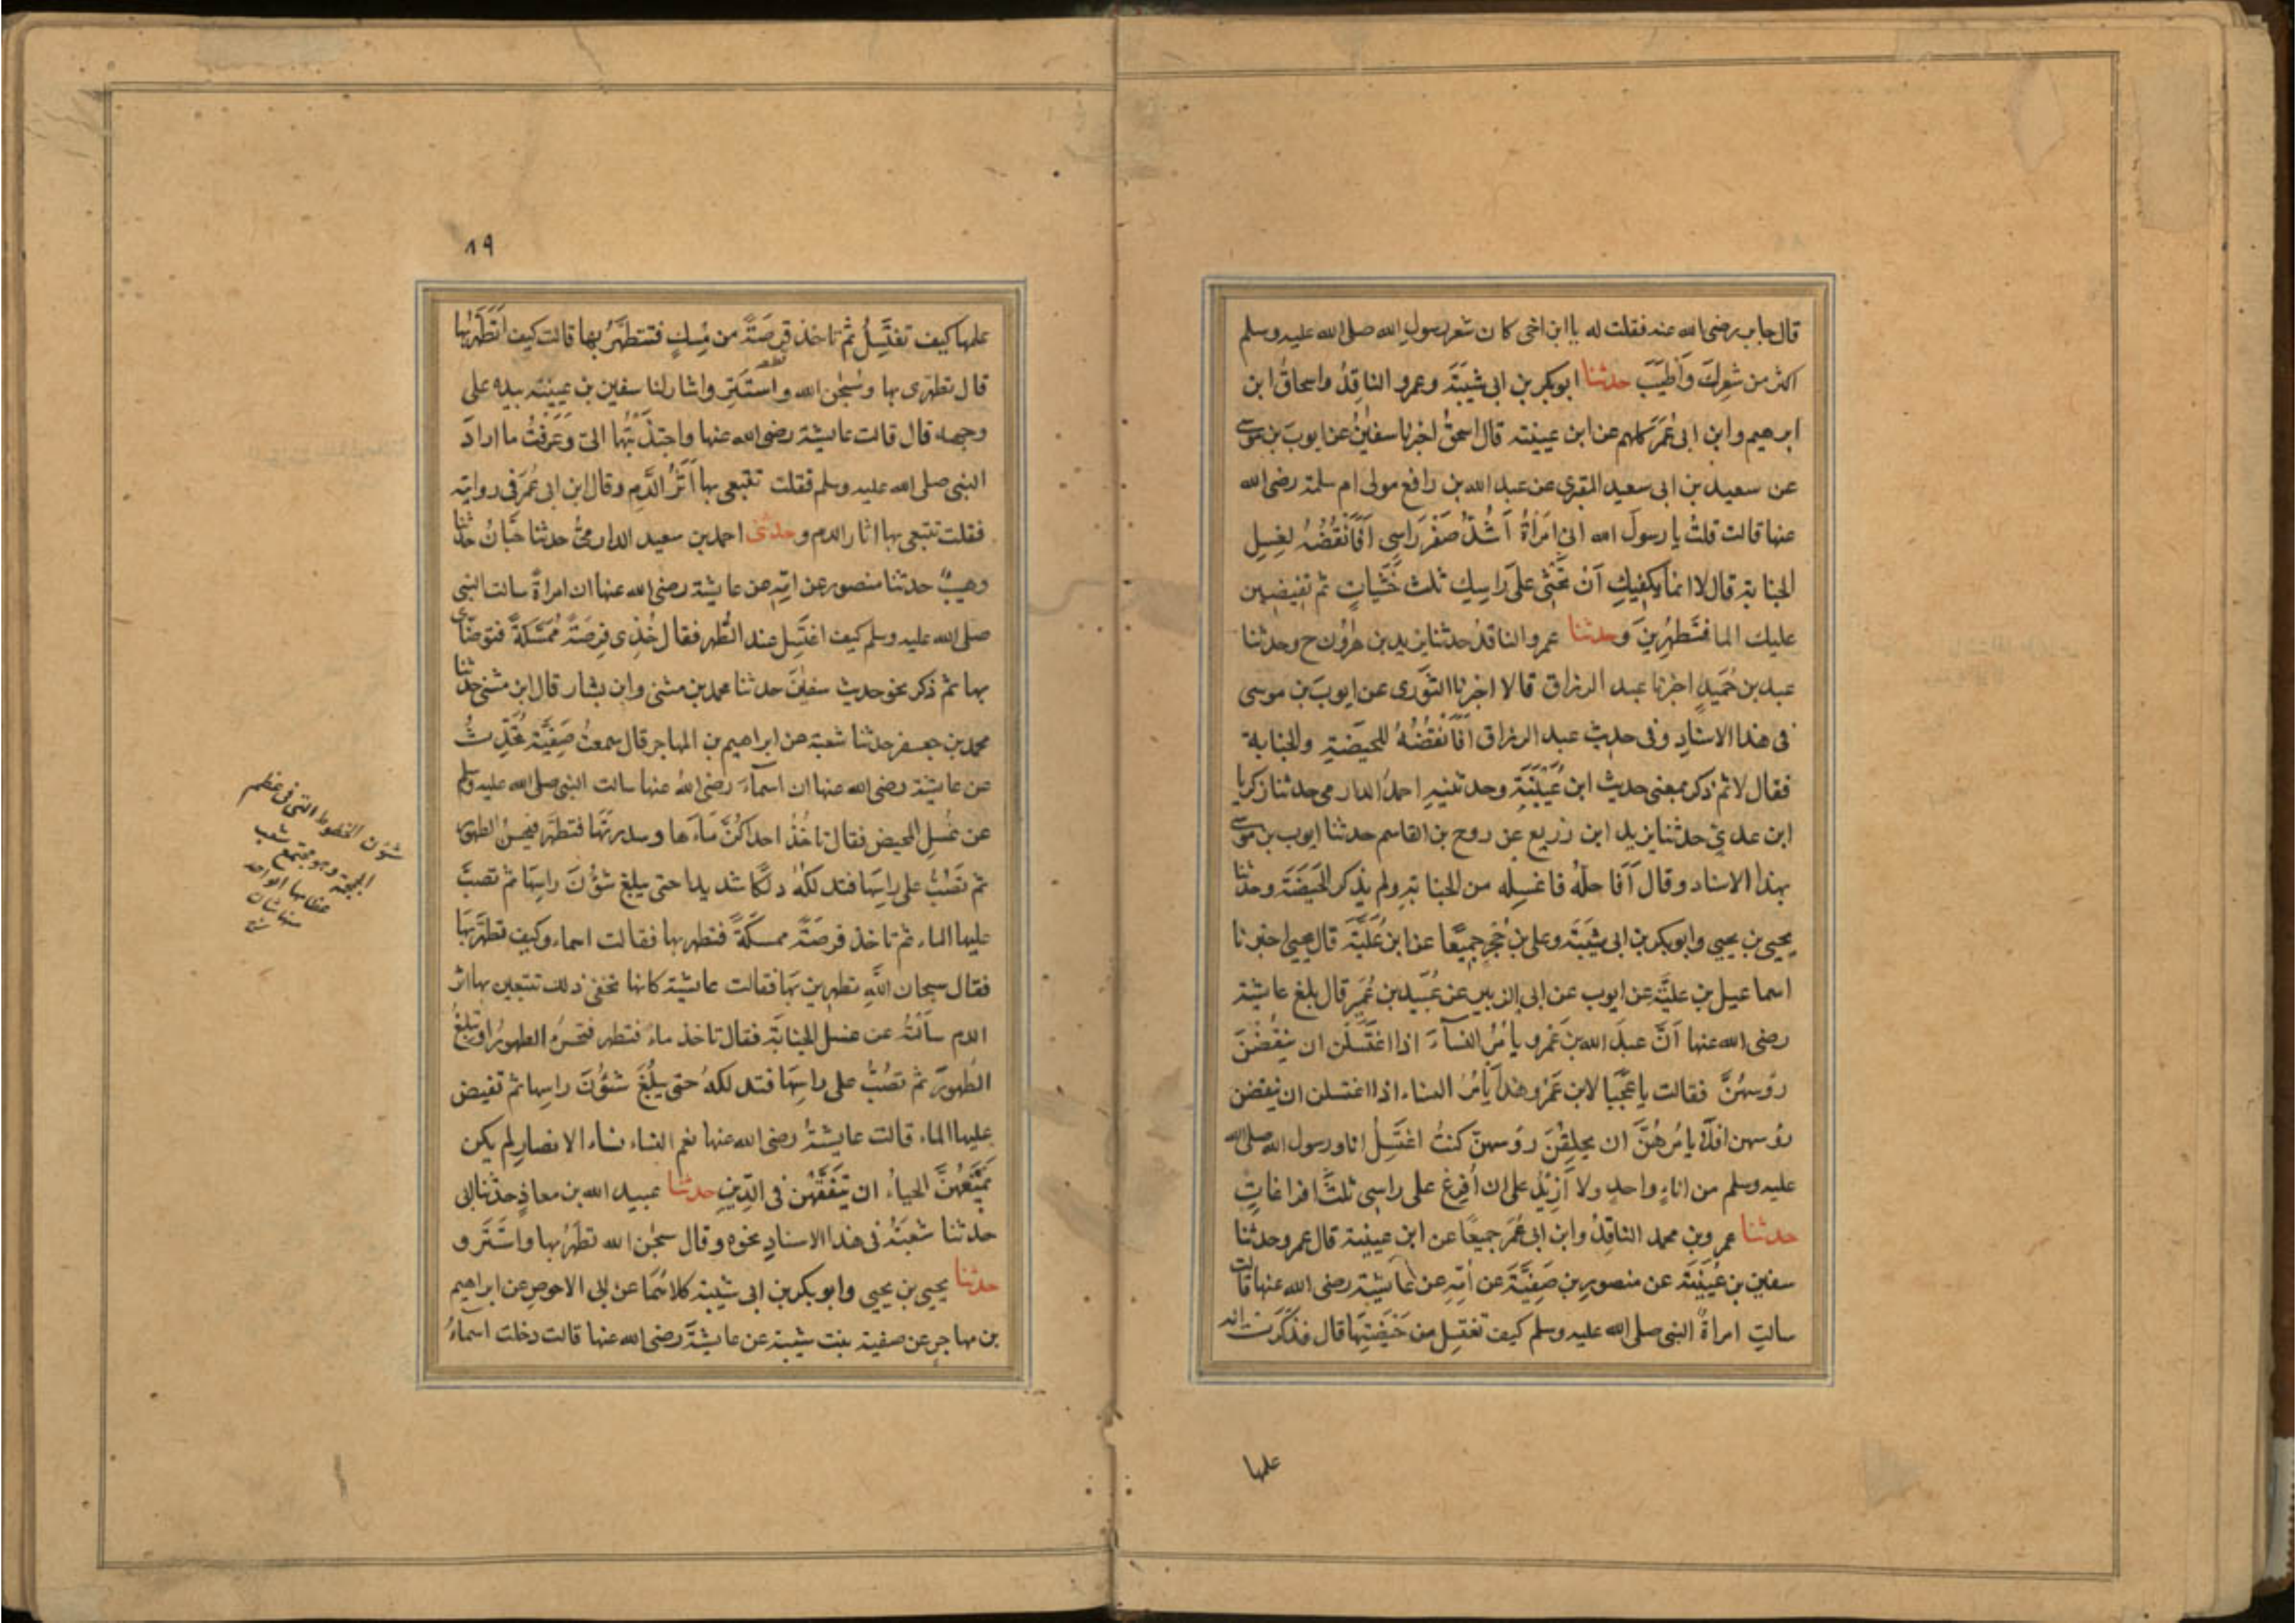 قال جابر رضى الله عنه فقلت له يا ابن اخى كان شعر رسول الله صلى الله عليه وسلم
اكثر من شعرك وَأَطْيَبَ حدثنا ابو بكر بن ابى شيبَةَ وعمرو الناقِدُ واسحاقُ ابن
ابرهيم وابن ابى عُمَرَ كلهم عن ابن عيينة قال اسحق اخبرنا سفينُ عن ايوبَ بن موسى
عن سعيد بن ابى سعيد المقبرى عن عبد الله بن رافع مولى ام سلمة رضى الله
عنها قالت قلتُ يا رسولَ الله انى امْرَأةٌ أَشُدُّ ضَفْرَ رَاسِى اَفَأنْقُضُهُ لغسلِ
الجنابة قال لا انما يكفيكِ اَنْ تَحْثِى عَلَى رَاسِكِ ثلث حَثَياتٍ ثم تفيضين
عليك الما فتَطهُرِينَ وحدثنا عمرو الناقدُ حدثنا يزيد بن هرُون ح وحدثنا
عبد بن حُمَيدٍ اخبرنا عبد الرزاق قالا اخبرنا الثَّوْرى عن ايوبَ بن موسى
فى هذا الاسنادِ وفى حديث عبد الرزاق اَفَأنْقُضُهُ للحيضَةِ والجنابة
فقال لا ثم ذكر بمعنى حديث ابن عُيَيْنَةَ وحدثنيهِ احمدُ الدارمى حدثنا زكريا
ابن عدىٍّ حدثنا يزيد ابن زريع عن روح بن القاسم حدثنا ايوب بن موسى
بهذا الاسناد وقال أَفَاحلّه فاغسِله من الجنابة ولم يذكر الحَيضَةَ وحدثنا
يحيى بن يحيى وابو بكر بن ابى شيبَةَ وعلى بن حُجْرٍ جميعًا عن ابن عُلَيَّةَ قال يحيى اخبرنا
اسماعيل بن عليَّة عن ايوب عن ابى الزبير عن عُبيد بن عُمَيرٍ قال بلغ عايشة
رضى الله عنها اَنَّ عبدَ الله بنَ عَمْرو يأمُرُ النسآءَ اذا اغتَسَلْنَ ان ينقُضْنَ
رؤسهُنَّ فقالت يا عَجَبًا لابن عَمْرو هذا يَأْمُرُ النساء اذا اغتسلن ان ينقضن
رؤسهن افلا يامُرُهُنَّ ان يحلِقْنَ رؤسهنّ كنتُ اغتَسِلُ انا ورسول الله صلى الله
عليه وسلم من اناءٍ واحدٍ ولا أَزِيْدُ على ان اُفرِغَ على راسِى ثلثَ افراغاتٍ
حدثنا عمرو بن محمد الناقِدُ وابن ابى عُمَرَ جميعًا عن ابن عيينة قال عمرو حدثنا
سفين بن عُيَيْنَةَ عن منصورِ بن صَفِيَّةَ عن اُمِّهِ عن عايشة رضى الله عنها قالت
سالتِ امراةٌ النبى صلى الله عليه وسلم كيف تغتسِل من حَيضَتِهَا قال فذكَرَتْ انه
علمها
٨٩
علمها كيف تغتَسِلُ ثم تاخذ فِرصَةً من مِسكٍ فتتطهَّرُ بها قالت كيف أَتَطَهَّرُ بها
قال تطهرى بها وسُبحن الله واستَتَرَ واشار لنا سفين بن عيينة بيده على
وجهه قال قالت عايشة رضى الله عنها واجتذبتُها الىّ وَعَرَفْتُ ما ارادَ
النبى صلى الله عليه وسلم فقلت تتبعى بها اَثَرَ الدَّمِ وقال ابن ابى عُمَرَ فى روايته
فقلت تتبعى بها اثار الدم وحدثنى احمد بن سعيد الدارمىُّ حدثنا حَبَّانُ حدثنا
وهيبٌ حدثنا منصور عن امِّهِ عن عايشة رضى الله عنها ان امراةً سالت النبى
صلى الله عليه وسلم كيف اغتَسِل عند الطُّهر فقال خُذِى فِرصَةً مُمَسَّكَةً فتوضّاى
بها ثم ذكر نحو حديث سفينَ حدثنا محمد بن مثنى وابن بشار قال ابن مثنى حدثنا
محمد بن جعفر حدثنا شعبة عن ابراهيم بن المهاجر قال سمعتُ صَفِيَّةَ تُحَدِّثُ
عن عايشة رضى الله عنها ان اسمآءَ رضى الله عنها سالت النبى صلى الله عليه وسلم
عن غُسلِ المحيض فقال تاخُذُ احداكُنَّ مَاءَها وسدرتَهَا فتطهر فتحسِنُ الطهورَ
ثم تصُبُّ على راسِهَا فتدلكهُ دلكًا شديدا حتى يبلغ شؤُنَ راسِهَا ثم تصبّ
عليها الماء ثم تاخذ فرصَةً ممسكَةً فتطهر بها فقالت اسماء وكيف تطهَّرُ بهَا
فقال سبحان اللهِ تطهرين بهَا فقالت عايشة كانها تخفى ذلك تتبعين بها اثر
الدم سألتُهُ عن غسل الجنابَةِ فقال تاخذ ماءً فتطهر فتحسنُ الطهورَ او تبلغُ
الطهورَ ثم تصُبُّ على راسِهَا فتدلكهُ حتى يبلُغَ شؤُنَ راسِها ثم تفيض
عليها الماء قالت عايشةُ رضى الله عنها نعم النساء نساء الانصارِ لم يكن
يَمْنَعُهنَّ الحياءُ ان يَتَفَقَّهْن فى الدِّينِ حدثنا عبيد الله بن معاذٍ حدثنا ابى
حدثنا شعبَةُ فى هذا الاسنادِ نحوه وقال سبحن الله تطهرُ بها واستَتَر و
حدثنا يحيى بن يحيى وابو بكر بن ابى شيبة كلاهُمَا عن ابى الاحوصِ عن ابراهيم
بن مهاجرٍ عن صفية بنت شيبة عن عايشَةَ رضى الله عنها قالت دخلت اسمآءُ
شؤن الخطوط التى فى عظم
الجمجمة وهو مجتمع شعب
عظامها الواحد
شان